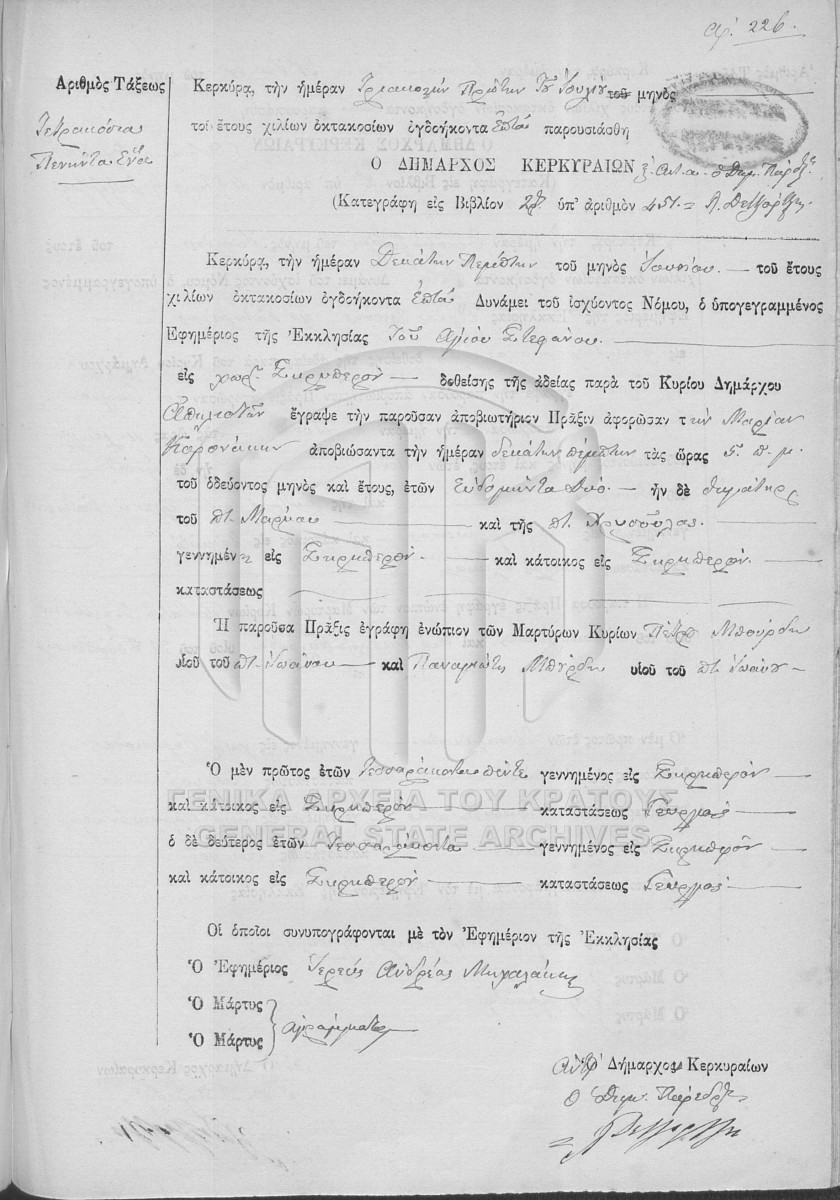 αρ. 226.
Ἀριθμὸς Τάξεως
Τετρακόσια
Πενήντα Ενα
Κερκύρᾳ, τὴν ἡμέραν Τριακοστήν Πρώτην Ιουλίου τοῦ μηνὸς
τοῦ ἔτους χιλίων ὀκτακοσίων ὀγδοήκοντα Επτά παρουσιάσθη
Ο ΔΗΜΑΡΧΟΣ ΚΕΡΚΥΡΑΙΩΝ
(Κατεγράφη εἰς Βιβλίον ὑπ' ἀριθμὸν 451.
Κερκύρᾳ, τὴν ἡμέραν Δεκάτην Πέμπτην τοῦ μηνὸς Ιουλίου. τοῦ ἔτους
χιλίων ὀκτακοσίων ὀγδοήκοντα Επτά Δυνάμει τοῦ ἰσχύοντος Νόμου, ὁ ὑπογεγραμμένος
Ἐφημέριος τῆς Ἐκκλησίας Του Αγίου Στεφάνου.
εἰς χωρ. Σκριπερόν δοθείσης τῆς ἀδείας παρὰ τοῦ Κυρίου Δημάρχου
ἔγραψε τὴν παροῦσαν ἀποβιωτήριον Πρᾶξιν ἀφορῶσαν τ ην Μαρίαν
ἀποβιώσαντα τὴν ἡμέραν δεκάτην πέμπτην τὰς ὥρας 5. π. μ.
τοῦ ὁδεύοντος μηνὸς καὶ ἔτους, ἐτῶν Εβδομήντα δύο ἦν δὲ θυγάτηρ
τοῦ π. Μαρίνου καὶ τῆς π. Χρυσούλας.
γεννημέν η εἰς Σκριπερόν. καὶ κάτοικος εἰς Σκριπερόν.
καταστάσεως
Ἡ παροῦσα Πρᾶξις ἐγράφη ἐνώπιον τῶν Μαρτύρων Κυρίων Πέτρου Μπούρδη
υἱοῦ τοῦ π. Ιωάννου καὶ Παναγιώτη Μπούρδη υἱοῦ τοῦ π. Ιωάννου
Ὁ μὲν πρῶτος ἐτῶν Τεσσαρακονταπέντε γεννημένος εἰς Σκριπερόν
καὶ κάτοικος εἰς Σκριπερόν καταστάσεως Γεωργός
ὁ δὲ δεύτερος ἐτῶν Τεσσαράκοντα γεννημένος εἰς Σκριπερόν
καὶ κάτοικος εἰς Σκριπερόν καταστάσεως Γεωργός
ΓΕΝΙΚΑ ΑΡΧΕΙΑ ΤΟΥ ΚΡΑΤΟΥΣ
GENERAL STATE ARCHIVES
Οἱ ὁποῖοι συνυπογράφονται μὲ τὸν Ἐφημέριον τῆς Ἐκκλησίας
Ὁ Ἐφημέριος Ιερεύς Ανδρέας Μιχαλάκης
Ὁ Μάρτυς
Ὁ Μάρτυς } αγράμματοι
Αντί Δήμαρχος Κερκυραίων
Ο Δημ. Πάρεδρος